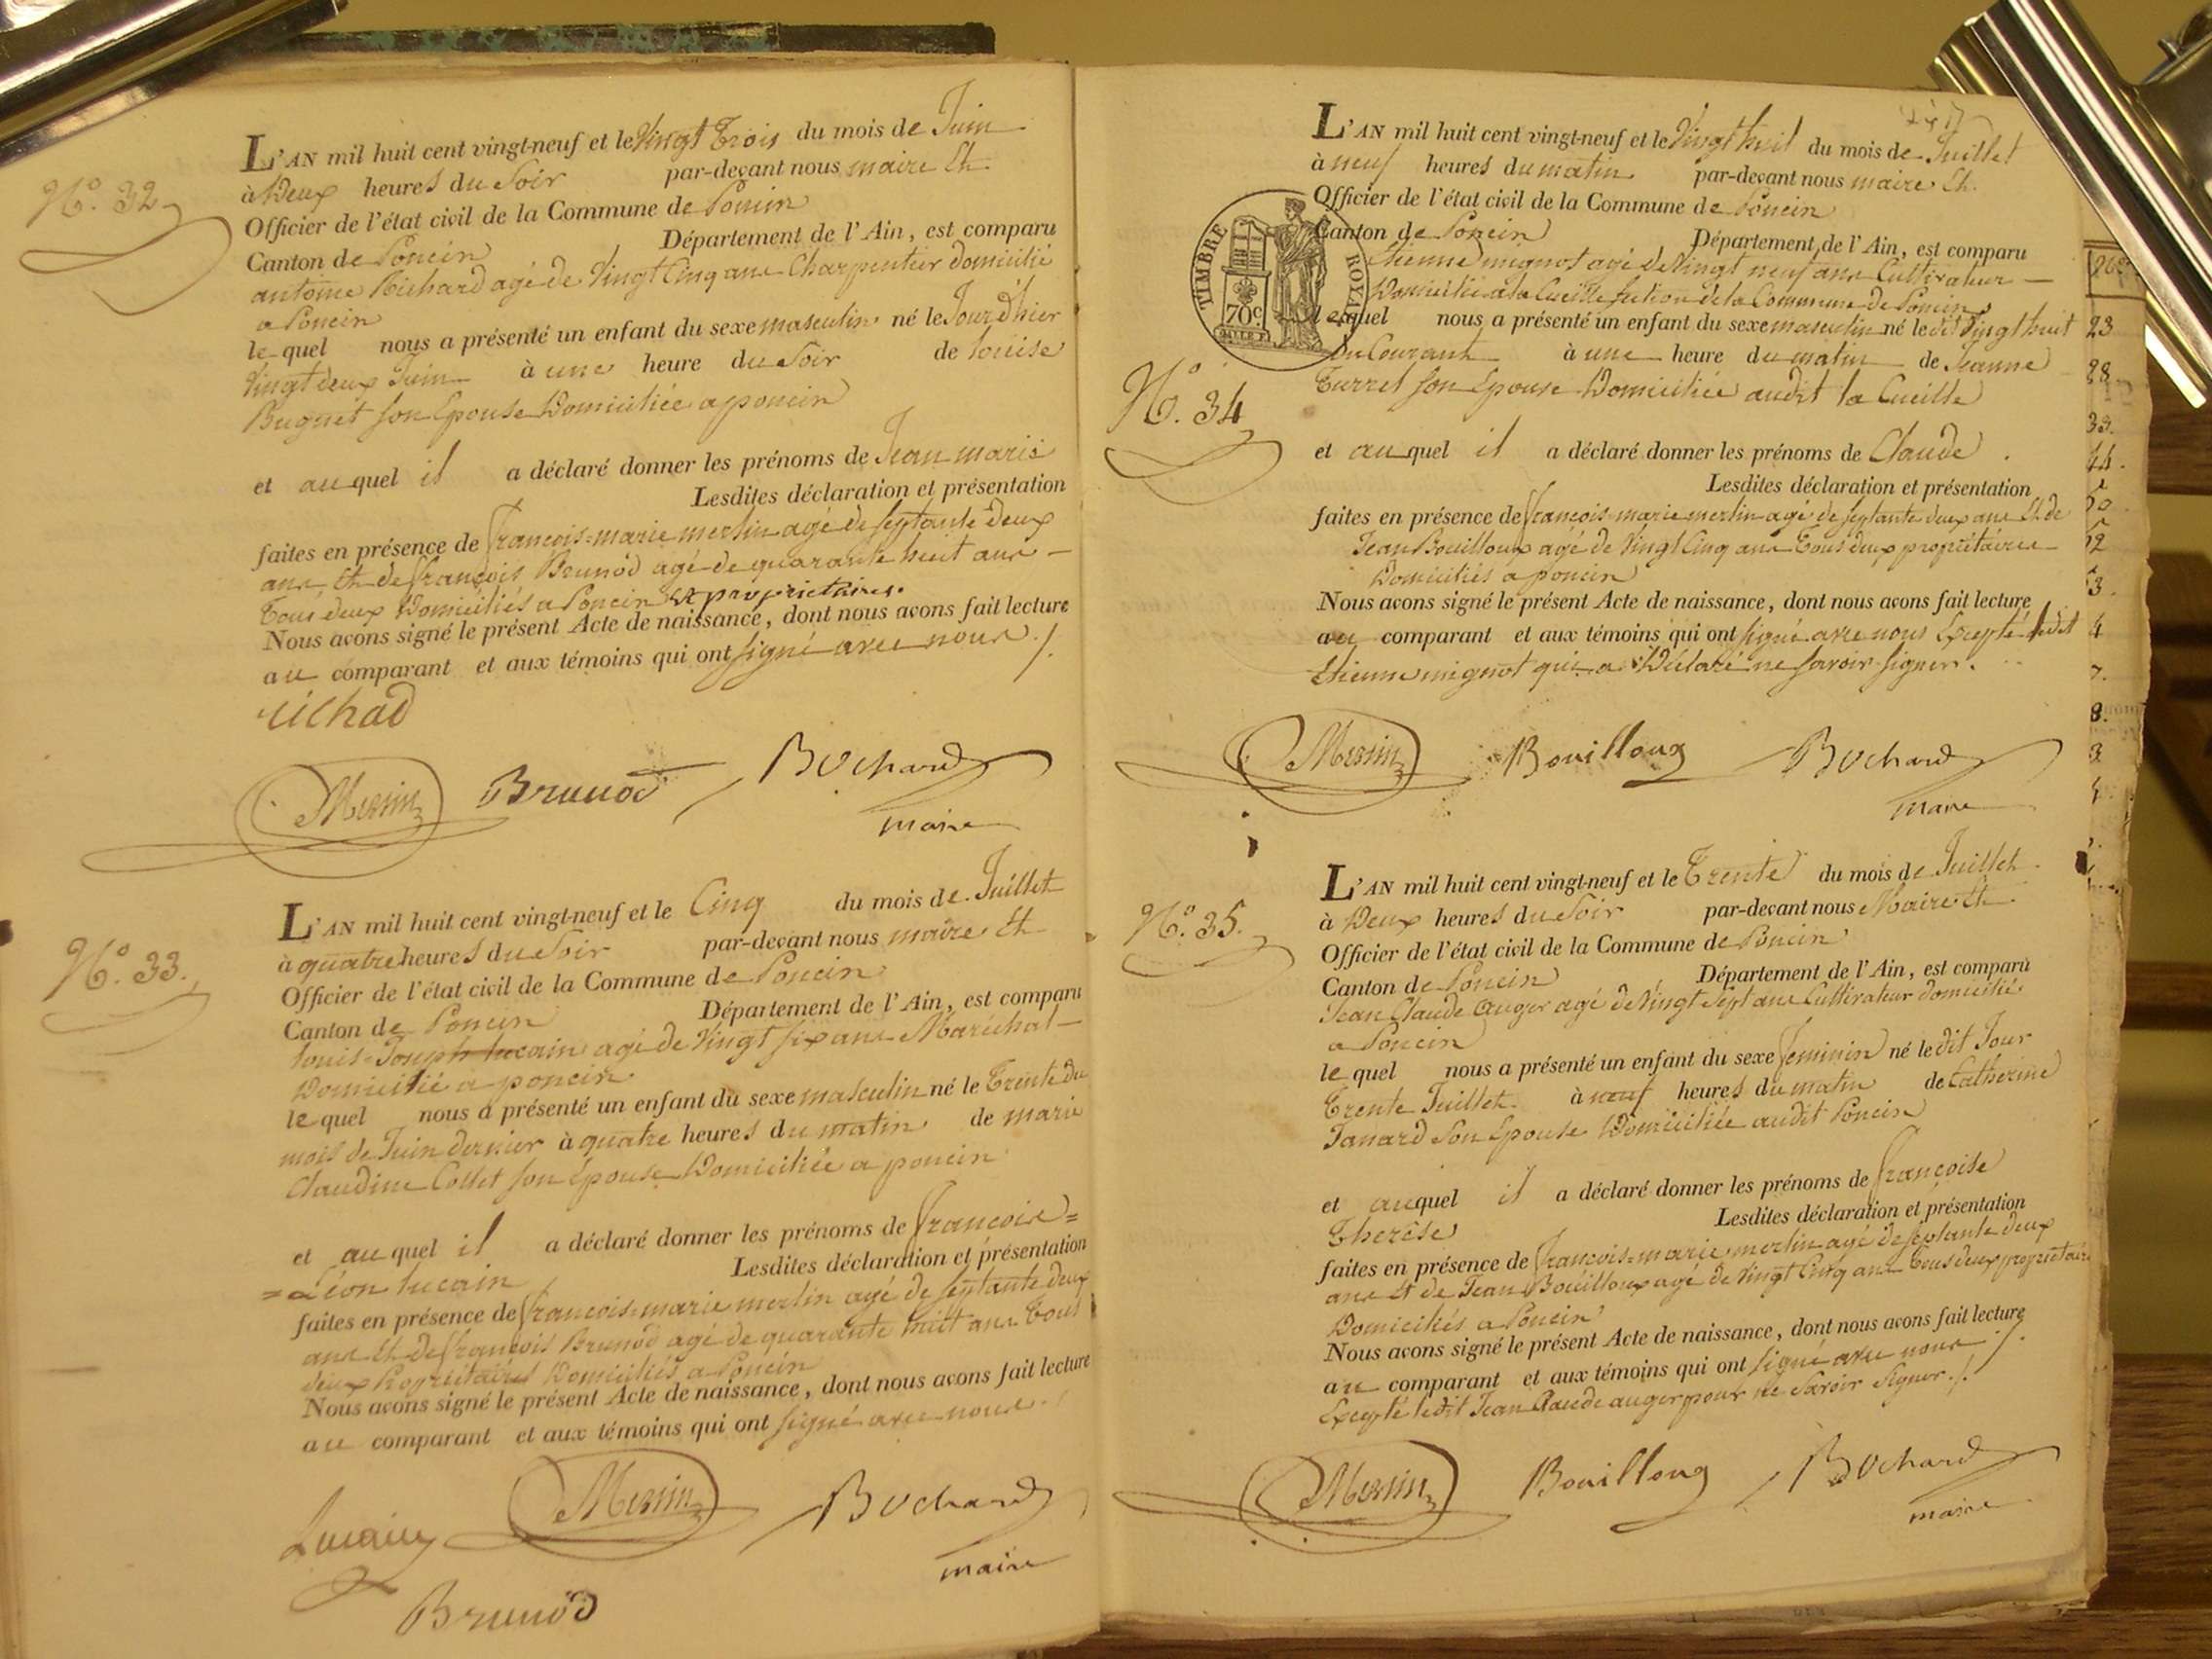 N.º 32
L'AN mil huit cent vingt-neuf et le Vingt Trois du mois de Juin
à Deux heures du Soir par-devant nous maire Et
Officier de l'état civil de la Commune de Poncin
Canton de Poncin Département de l'Ain, est comparu
antoine Richard agé de Vingt Cinq ans Charpentier domicilié
a Poncin
le quel nous a présenté un enfant du sexe masculin né le Jour d'hier
Vingt deux Juin à une heure du Soir de louise
Bugnet son Epouse Domiciliée a poncin
et au quel il a déclaré donner les prénoms de Jean marie
Lesdites déclaration et présentation
faites en présence de françois=marie merlin agé de septante deux
ans Et de françois Brunod agé de quarante huit ans
Tous deux Domiciliés a Poncin et propriétaires.
Nous avons signé le présent Acte de naissance, dont nous avons fait lecture
au comparant et aux témoins qui ont signé avec nous ./.
richad
Merlin Brunod Bochard
maire
N.º 33.
L'AN mil huit cent vingt-neuf et le Cinq du mois de Juillet
à quatre heures du Soir par-devant nous maire Et
Officier de l'état civil de la Commune de Poncin
Canton de Poncin Département de l'Ain, est comparu
louis=Joseph lucain agé de Vingt six ans Maréchal
Domicilié a poncin
le quel nous a présenté un enfant du sexe masculin né le Trente du
mois de Juin dernier à quatre heures du matin de marie
Claudine Collet son Epouse Domiciliée a poncin
et au quel il a déclaré donner les prénoms de françois=
=Léon lucain Lesdites déclaration et présentation
faites en présence de françois=marie merlin agé de septante deux
ans Et de françois Brunod agé de quarante huit ans Tous
deux Propriétaires Domiciliés a Poncin
Nous avons signé le présent Acte de naissance, dont nous avons fait lecture
au comparant et aux témoins qui ont signé avec nous ./
Lucain Merlin Bochard
maire
Brunod
L'AN mil huit cent vingt-neuf et le Vingt huit du mois de Juillet
à neuf heures du matin par-devant nous maire Et
Officier de l'état civil de la Commune de Poncin
Canton de Poncin Département de l'Ain, est comparu
Etienne mignot agé de Vingt neuf ans Cultivateur
Domicilié a la Cueille section de la Commune de Poncin
lequel nous a présenté un enfant du sexe masculin né le dit Vingt huit
Du Courant à une heure du matin de Jeanne
Turrel son Epouse Domiciliée audit la Cueille
TIMBRE ROYAL
70c
N.º 34
et au quel il a déclaré donner les prénoms de Claude.
Lesdites déclaration et présentation
faites en présence de françois=marie merlin agé de septante deux ans Et de
Jean Bouilloux agé de Vingt Cinq ans Tous deux propriétaires
Domiciliés a poncin
Nous avons signé le présent Acte de naissance, dont nous avons fait lecture
au comparant et aux témoins qui ont signé avec nous Excepté ledit
Etienne mignot qui a Déclaré ne savoir signer.
Merlin Bouilloux Bochard
maire
N.º 35.
L'AN mil huit cent vingt-neuf et le Trente du mois de Juillet
à Deux heures du Soir par-devant nous Maire Et
Officier de l'état civil de la Commune de Poncin
Canton de Poncin Département de l'Ain, est comparu
Jean Claude Auger agé de Vingt Sept ans Cultivateur domicilié
a Poncin
le quel nous a présenté un enfant du sexe feminin né le dit Jour
Trente Juillet. à neuf heures du matin de Catherine
Janard Son Epouse Domiciliée audit Poncin
et auquel il a déclaré donner les prénoms de françoise
Therese Lesdites déclaration et présentation
faites en présence de françois=marie merlin agé de septante deux
ans Et de Jean Bouilloux agé de Vingt Cinq ans Tous deux propriétaires
Domiciliés a Poncin
Nous avons signé le présent Acte de naissance, dont nous avons fait lecture
au comparant et aux témoins qui ont signé avec nous ./.
Excepté ledit Jean Claude auger pour ne Savoir Signer ./.
Merlin Bouilloux Bochard
maire
23
28
33.
44.